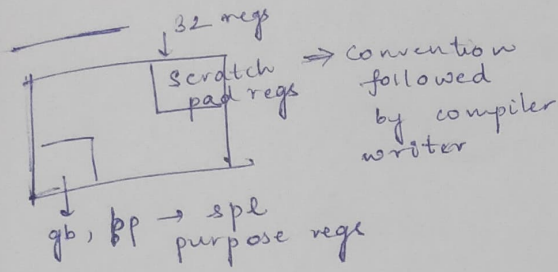 32 regs
scratch
pad regs
⇒ convention
followed
by compiler
writer
gb, pp → spl
purpose regs